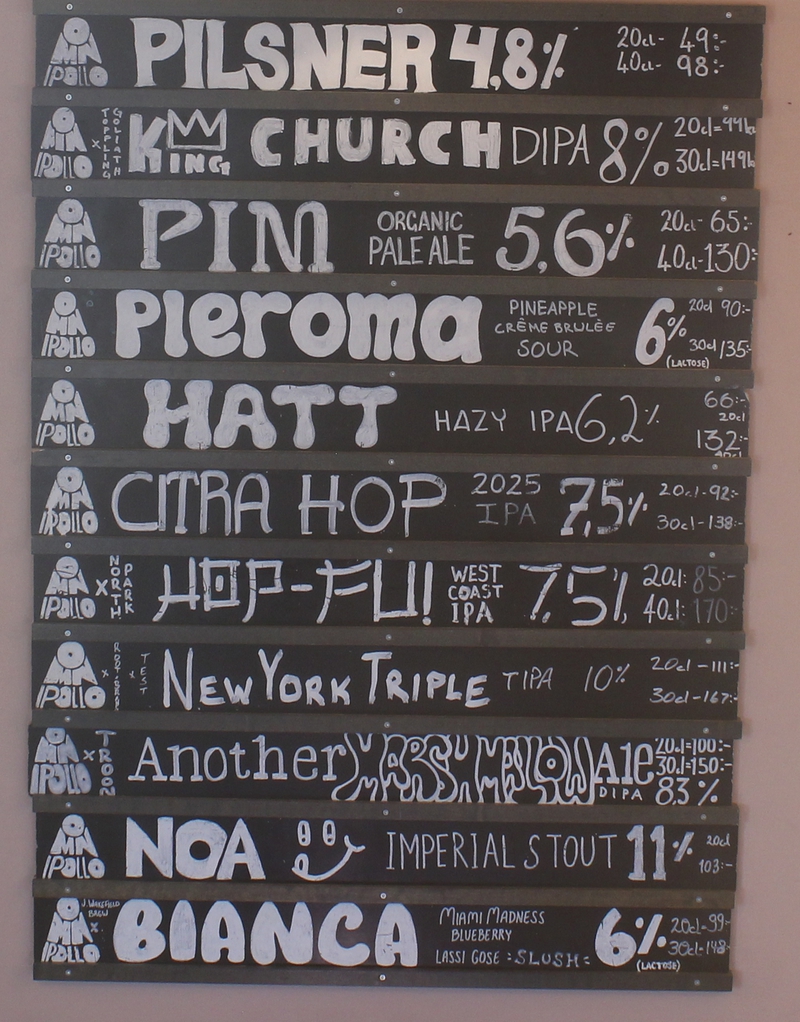 OMNIPOLLO PILSNER 4,8% 20cl- 49:-
40cl- 98:-
OMNIPOLLO x TOPPLING GOLIATH KING CHURCH DIPA 8% 20cl=99kr
30cl=149kr
OMNIPOLLO PIM ORGANIC PALE ALE 5,6% 20cl- 65:-
40cl-130:-
OMNIPOLLO Pleroma PINEAPPLE CRÈME BRULÈE SOUR 6% (LACTOSE) 20cl 90:-
30cl 135:-
OMNIPOLLO HATT HAZY IPA 6,2% 66:- 20cl
132:- 40cl
OMNIPOLLO CITRA HOP 2025 IPA 7,5% 20cl-92:-
30cl-138:-
OMNIPOLLO X NORTH PARK HOP-FU! WEST COAST IPA 7.5% 20cl: 85:-
40cl: 170:-
OMNIPOLLO x x TEST NEW YORK TRIPLE TIPA 10% 20cl -111:-
30cl-167:-
OMNIPOLLO x TROON Another MARSHMALLOW Ale DIPA 20cl=100:-
30cl=150:-
8,3 %
OMNIPOLLO NOA IMPERIAL STOUT 11% 20cl
103:-
OMNIPOLLO J. WAKEFIELD BREW x BIANCA MIAMI MADNESS BLUEBERRY LASSI GOSE :SLUSH: 6% (LACTOSE) 20cl-99:-
30cl-148:-